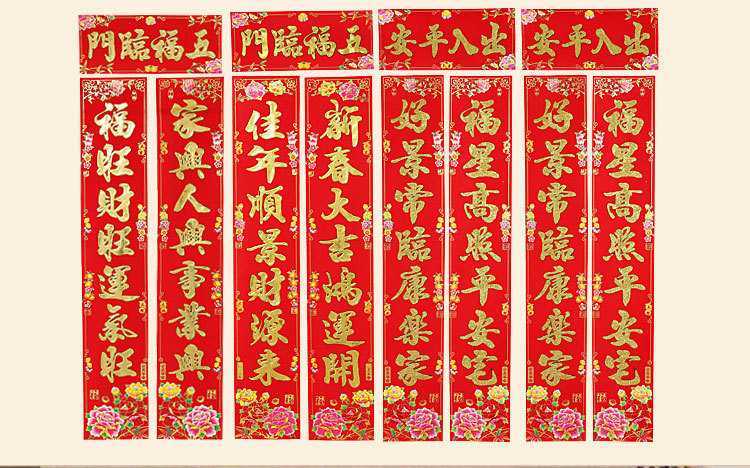 五福臨門
家興人興事業興
福旺財旺運氣旺
五福臨門
新春大吉鴻運開
佳年順景財源來
出入平安
福星高照平安宅
好景常臨康樂家
出入平安
福星高照平安宅
好景常臨康樂家